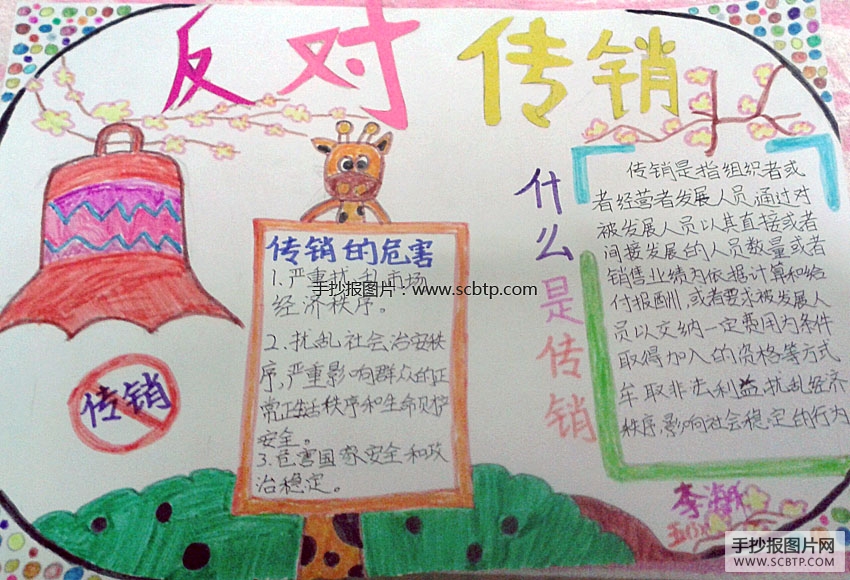 反对传销
传销的危害
1.严重扰乱市场
经济秩序。
手抄报图片:www.scbtp.com
2.扰乱社会治安秩
序,严重影响群众的正
常生活秩序和生命财产
安全。
3.危害国家安全和政
治稳定。
传销
什么是传销
传销是指组织者或
者经营者发展人员,通过对
被发展人员以其直接或者
间接发展的人员数量或者
销售业绩为依据计算和给
付报酬,或者要求被发展人
员以交纳一定费用为条件
取得加入的资格等方式
牟取非法利益,扰乱经济
秩序,影响社会稳定的行为
李海
手抄报图片网
WWW.SCBTP.COM